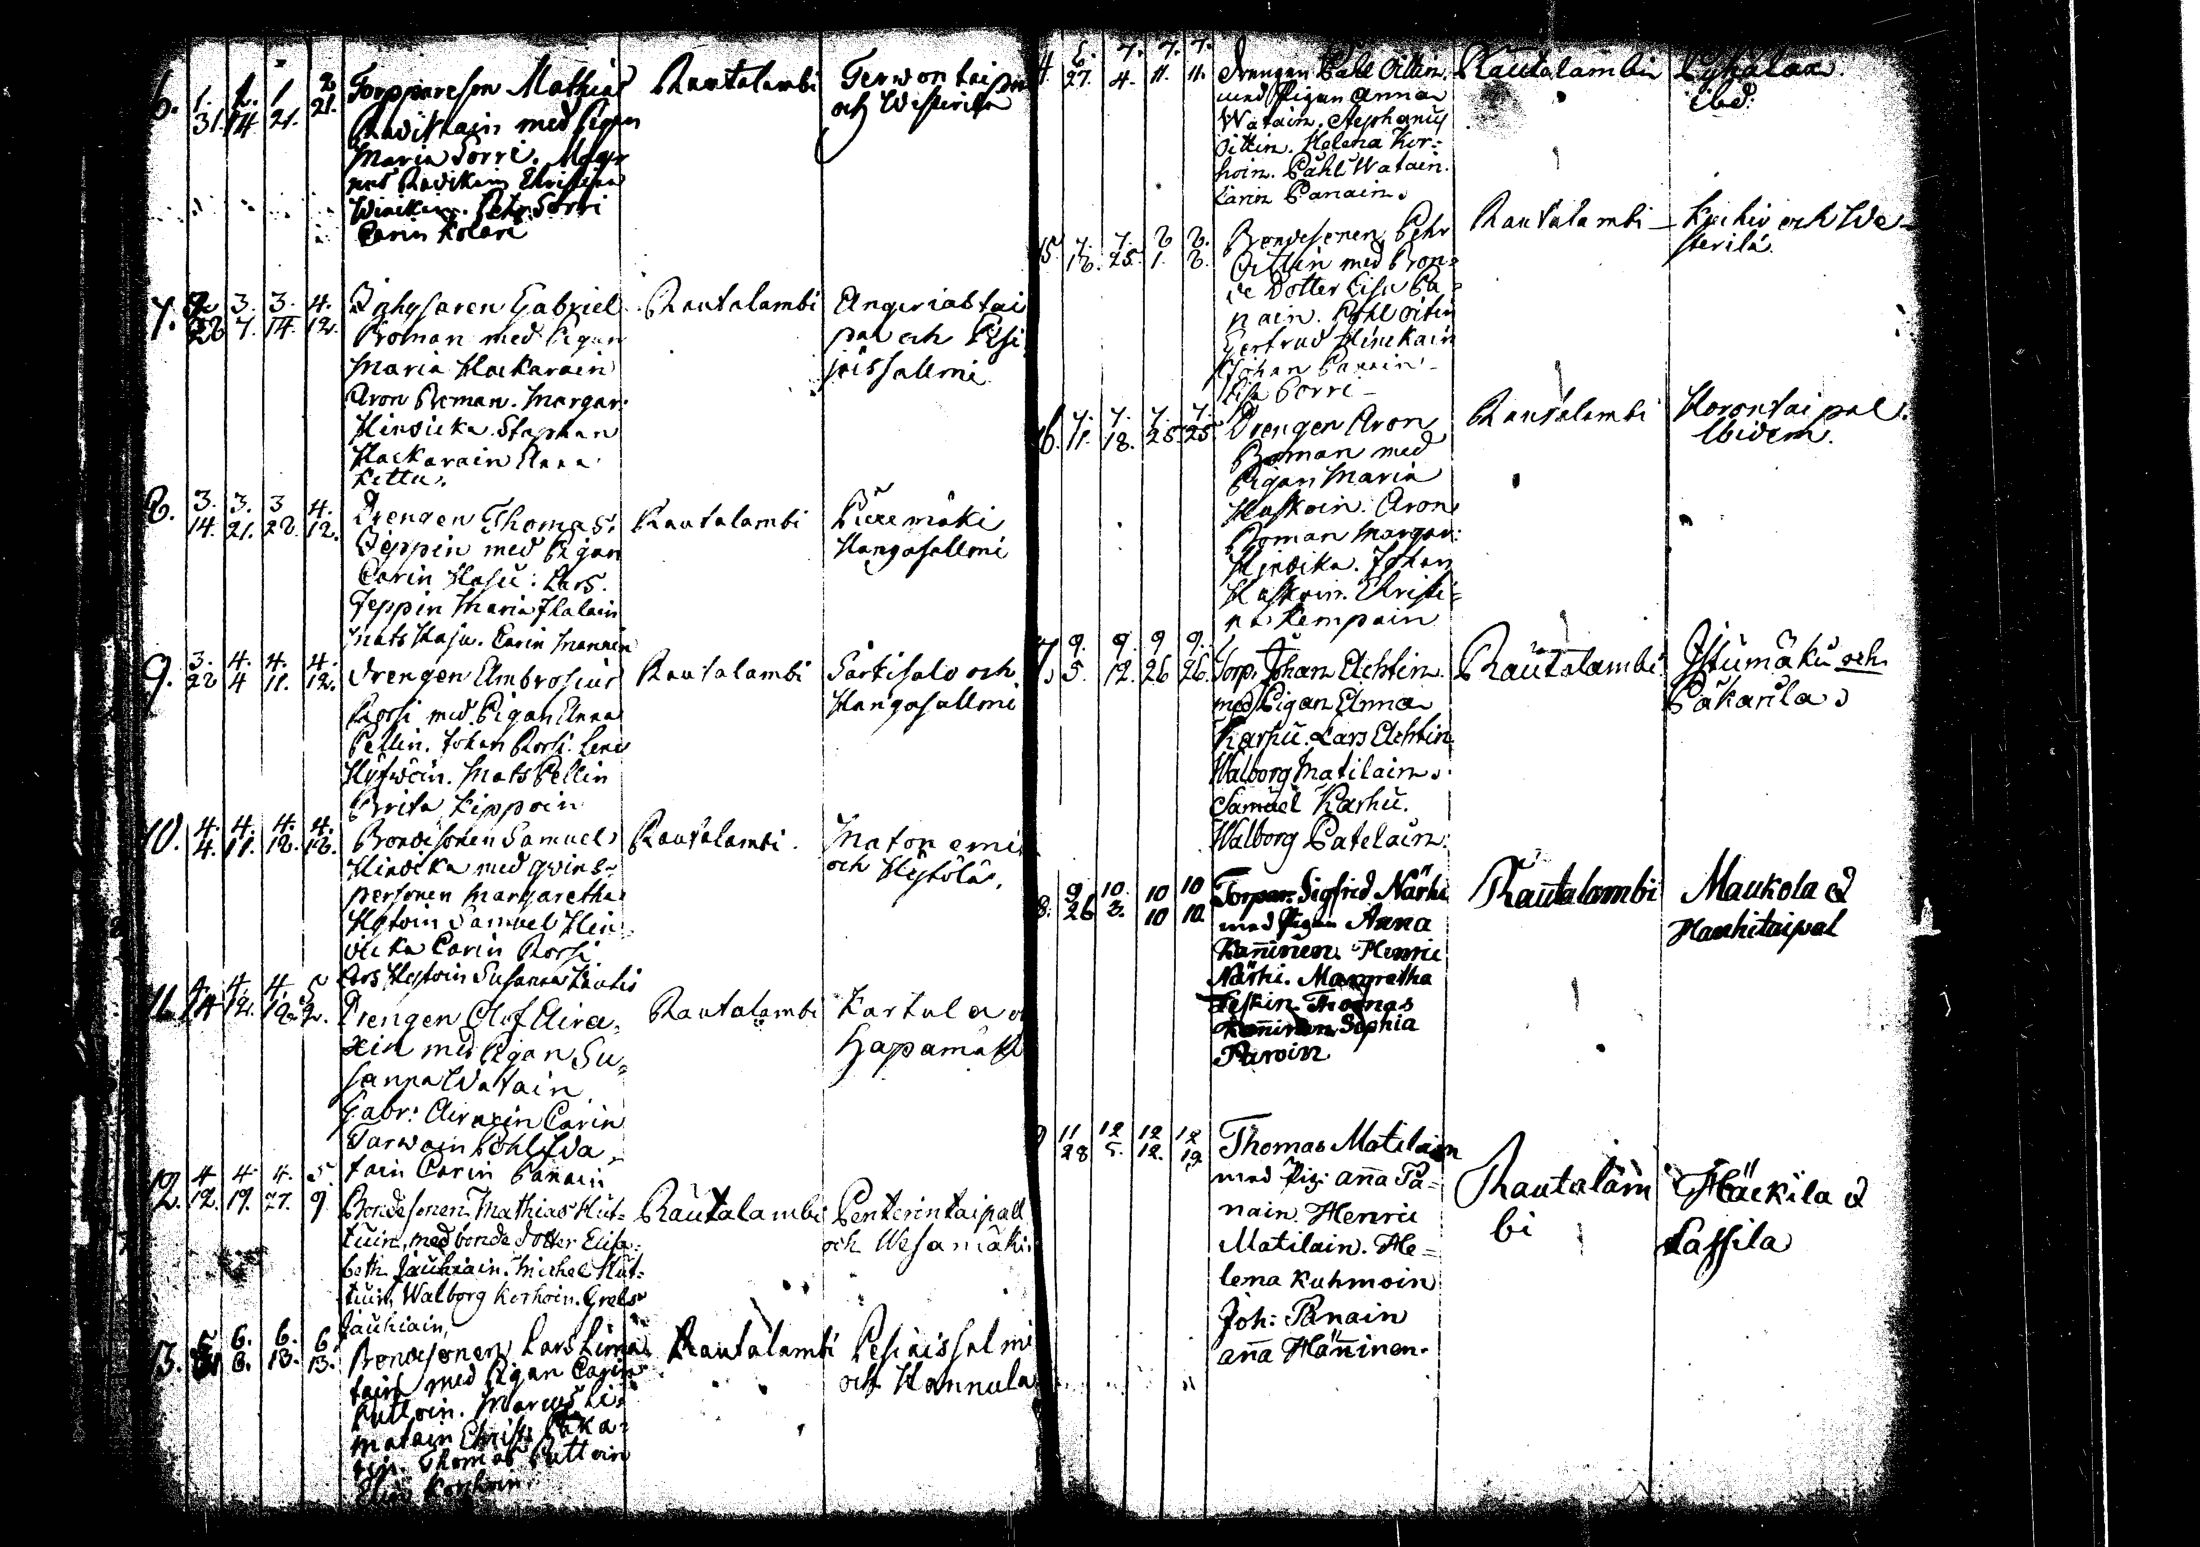 6. 1. 1. 1 2
31. 14 21. 21.
Torppareson Mathias
med Pigan
Maria Sorri. Mag-
nus
Pehr Sorri
Carin Kolari
Rautalambi
och Westerila
7. 2 3. 3. 4.
28 7. 14. 12.
Gabriel
Roman med Pigan
Maria Hackarain
Aron Roman. Margar:
Hindicka. Staphan
Hackarain Anna
Kettu.
Rautalambi
Angeriastai
pal och Pesi
jäissallmi
8. 3. 3. 3 4.
14. 21. 28. 12.
Drengen Thomas
Jeppin med Pigan
Carin Hasu: Lars
Jeppin Maria Jlalain
Mats Hasu. Carin Mannin
Rautalambi
Hangasallmi
9. 3. 4. 4. 4.
28 4 11. 12.
Drengen Ambrosius
Rossi med Pigan Anna
Pellin. Johan Rossi. Lena
Hyfwöin. Mats Pellin
Brita Kippoin
Rautalambi
Särkisalo och
Hangasallmi
10. 4. 4. 4. 4.
4. 11. 18. 18.
Bondesonen Samuel
Hindicka med qvins-
personen Margaretha
Hytoin Samuel Hin-
dicka Carin Rossi
Lars Hytoin Susanna Kautis
Rautalambi.
och Hytölä.
11. 4. 4. 4. 5
Drengen Olof Aira-
xin med Pigan Su-
sanna Watain
Gabr: Airaxin Carin
Tarwain Påhl Wa-
tain Carin Panain
Rautalambi
Kartula o
Hapamäk
12. 4 4 4. 5.
12. 19. 27. 9
Bondesonen Mathias Hut-
tuin, med bonde dotter Elisa-
beth Jauhiain. Michel Hut-
tuin, Walborg Korhoin. Grels
Jauhiain,
Rautalambi
Penterintaipall
och Wesamäki
13. 6. 6. 6
6. 13. 13.
Bondesonen Lars Lima-
tain med Pigan Carin
Puttoin. Marcus Li-
matain Christ:
Thomas Puttoin
Korhoin.
Rautalambi
Pesiäissalmi
och Hannula
4. 6. 7. 7. 7.
27. 4. 11. 11.
Drengen Påhl Oittin
med Pigan Anna
Watain. Stephanus
Oittin. Helena Kor-
hoin. Påhl Watain.
Karin Panain.
Rautalambi
ibid:
15. 7. 7. 8 8.
18. 25. 1. 8.
Bondesonen Pehr
Oittin med Bon-
de Dotter Lisa Pa-
nain. Påhl Oitin
Gertrud Hinckain
Johan Panain
Lisa Porri
Rautalambi
och We-
sterila.
16. 7. 7. 7. 7.
11. 18. 25. 25
Drengen Aron
Roman med
Pigan Maria
Haskoin. Aron
Roman Margar:
Hindika. Johan
Haskoin. Christi-
na Kempain
Rautalambi
Horontaipal.
Ibidem.
7. 9. 9. 9 9.
5. 12. 26 26.
Torp. Johan Achtin
med Pigan Anna
Karhu. Lars Achtin
Walborg Matilain.
Samuel Karhu.
Walborg Patelain:
Rautalambi
Istumäki och
Pakarila
8. 9 10. 10 10
26 3. 10 10.
Torpar: Sigfrid Närhi
med Pigan Anna
Kanninen. Henric
Närhi. Margretha
Leskin. Thomas
Kanninen Sophia
Parvin
Rautalambi
Maukola &
Hanhitaipal
11 12 12 12
28 5. 12. 12
Thomas Matilain
med Pig: Anna Pa=
nain. Henric
Matilain. He=
lena Kuhmoin
Joh: Panain
Anna Hänninen.
Rautalam
bi
Häckila &
Lassila